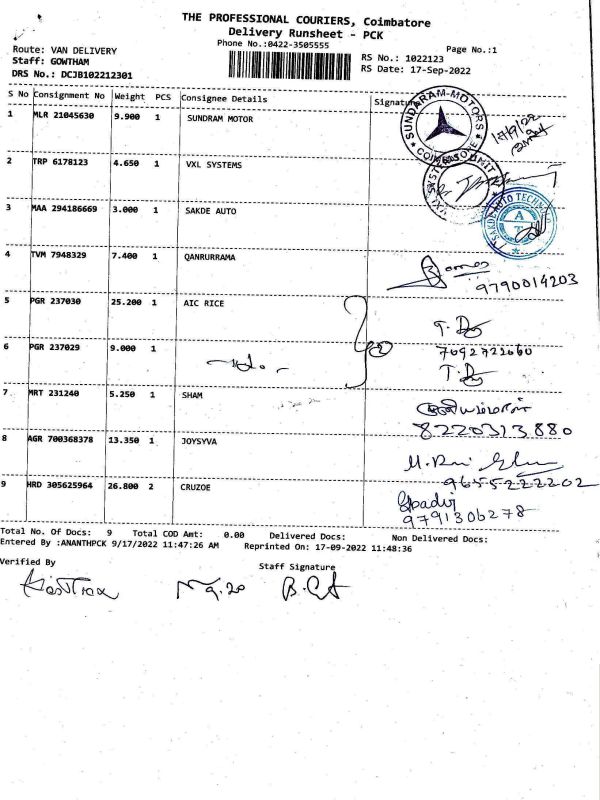 THE PROFESSIONAL COURIERS, Coimbatore
Delivery Runsheet - PCK
Phone No.:0422-3505555
Page No.:1
Route: VAN DELIVERY
Staff: GOWTHAM
DRS No.: DCJB102212301
RS No.: 1022123
RS Date: 17-Sep-2022
S No Consignment No Weight PCS Consignee Details Signature
1 MLR 21045630 9.900 1 SUNDRAM MOTOR
SUNDARAM-MOTORS
17/9/22
2 TRP 6178123 4.650 1 VXL SYSTEMS
VXL SYSTEMS
3 MAA 294186669 3.000 1 SAKDE AUTO
SAKDE AUTO
4 TVM 7948329 7.400 1 QANRURRAMA
9790014203
5 PGR 237030 25.200 1 AIC RICE
6 PGR 237029 9.000 1
7092722660
7 MRT 231240 5.250 1 SHAM
8220313880
8 AGR 700368378 13.350 1 JOYSYVA
9655222202
9 HRD 305625964 26.800 2 CRUZOE
9791306278
Total No. Of Docs: 9 Total COD Amt: 0.00 Delivered Docs: Non Delivered Docs:
Entered By :ANANTHPCK 9/17/2022 11:47:26 AM Reprinted On: 17-09-2022 11:48:36
Verified By Staff Signature